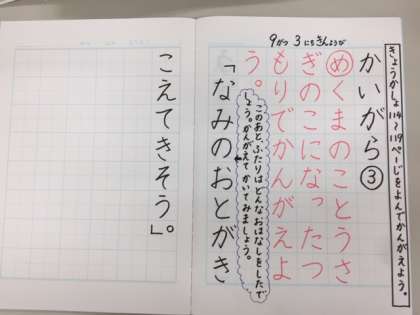 9がつ3にちきんようび
きょうかしょ114〜119ぺーじをよんでかんがえよう。
かいがら③
めくまのことうさ
ぎのこになったつ
もりでかんがえよ
う。
このあと、ふたりはどんなおはなしをしたで
しょう。かんがえてかいてみましょう。
「なみのおとがき
こえてきそう」。